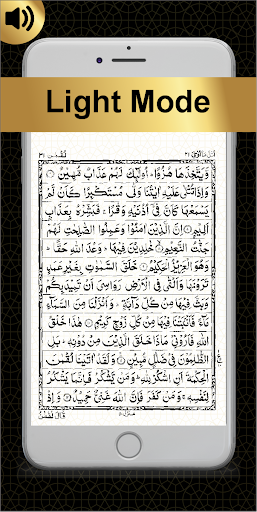 Light Mode
اتل مآ اوحی ٢١ لقمٰن ٣١
وَّيَتَّخِذَهَا هُزُوًا ؕ اُولٰٓئِكَ لَهُمْ عَذَابٌ مُّهِيْنٌ
وَاِذَا تُتْلٰى عَلَيْهِ اٰيٰتُنَا وَلّٰى مُسْتَكْبِرًا كَاَنْ لَّمْ
يَسْمَعْهَا كَاَنَّ فِيْٓ اُذُنَيْهِ وَقْرًا ۚ فَبَشِّرْهُ بِعَذَابٍ
اَلِيْمٍ اِنَّ الَّذِيْنَ اٰمَنُوْا وَعَمِلُوا الصّٰلِحٰتِ لَهُمْ
جَنّٰتُ النَّعِيْمِ خٰلِدِيْنَ فِيْهَا ؕ وَعْدَ اللّٰهِ حَقًّا ؕ
وَهُوَ الْعَزِيْزُ الْحَكِيْمُ خَلَقَ السَّمٰوٰتِ بِغَيْرِ عَمَدٍ
تَرَوْنَهَا وَاَلْقٰى فِي الْاَرْضِ رَوَاسِيَ اَنْ تَمِيْدَ بِكُمْ
وَبَثَّ فِيْهَا مِنْ كُلِّ دَآبَّةٍ ؕ وَاَنْزَلْنَا مِنَ السَّمَآءِ
مَآءً فَاَنْۢبَتْنَا فِيْهَا مِنْ كُلِّ زَوْجٍ كَرِيْمٍ هٰذَا خَلْقُ اللّٰهِ
فَاَرُوْنِيْ مَاذَا خَلَقَ الَّذِيْنَ مِنْ دُوْنِهٖ ؕ بَلِ
الظّٰلِمُوْنَ فِيْ ضَلٰلٍ مُّبِيْنٍ وَلَقَدْ اٰتَيْنَا لُقْمٰنَ
الْحِكْمَةَ اَنِ اشْكُرْ لِلّٰهِ ؕ وَمَنْ يَّشْكُرْ فَاِنَّمَا يَشْكُرُ
لِنَفْسِهٖ ۚ وَمَنْ كَفَرَ فَاِنَّ اللّٰهَ غَنِيٌّ حَمِيْدٌ وَاِذْ
قَالَ لُقْمٰنُ